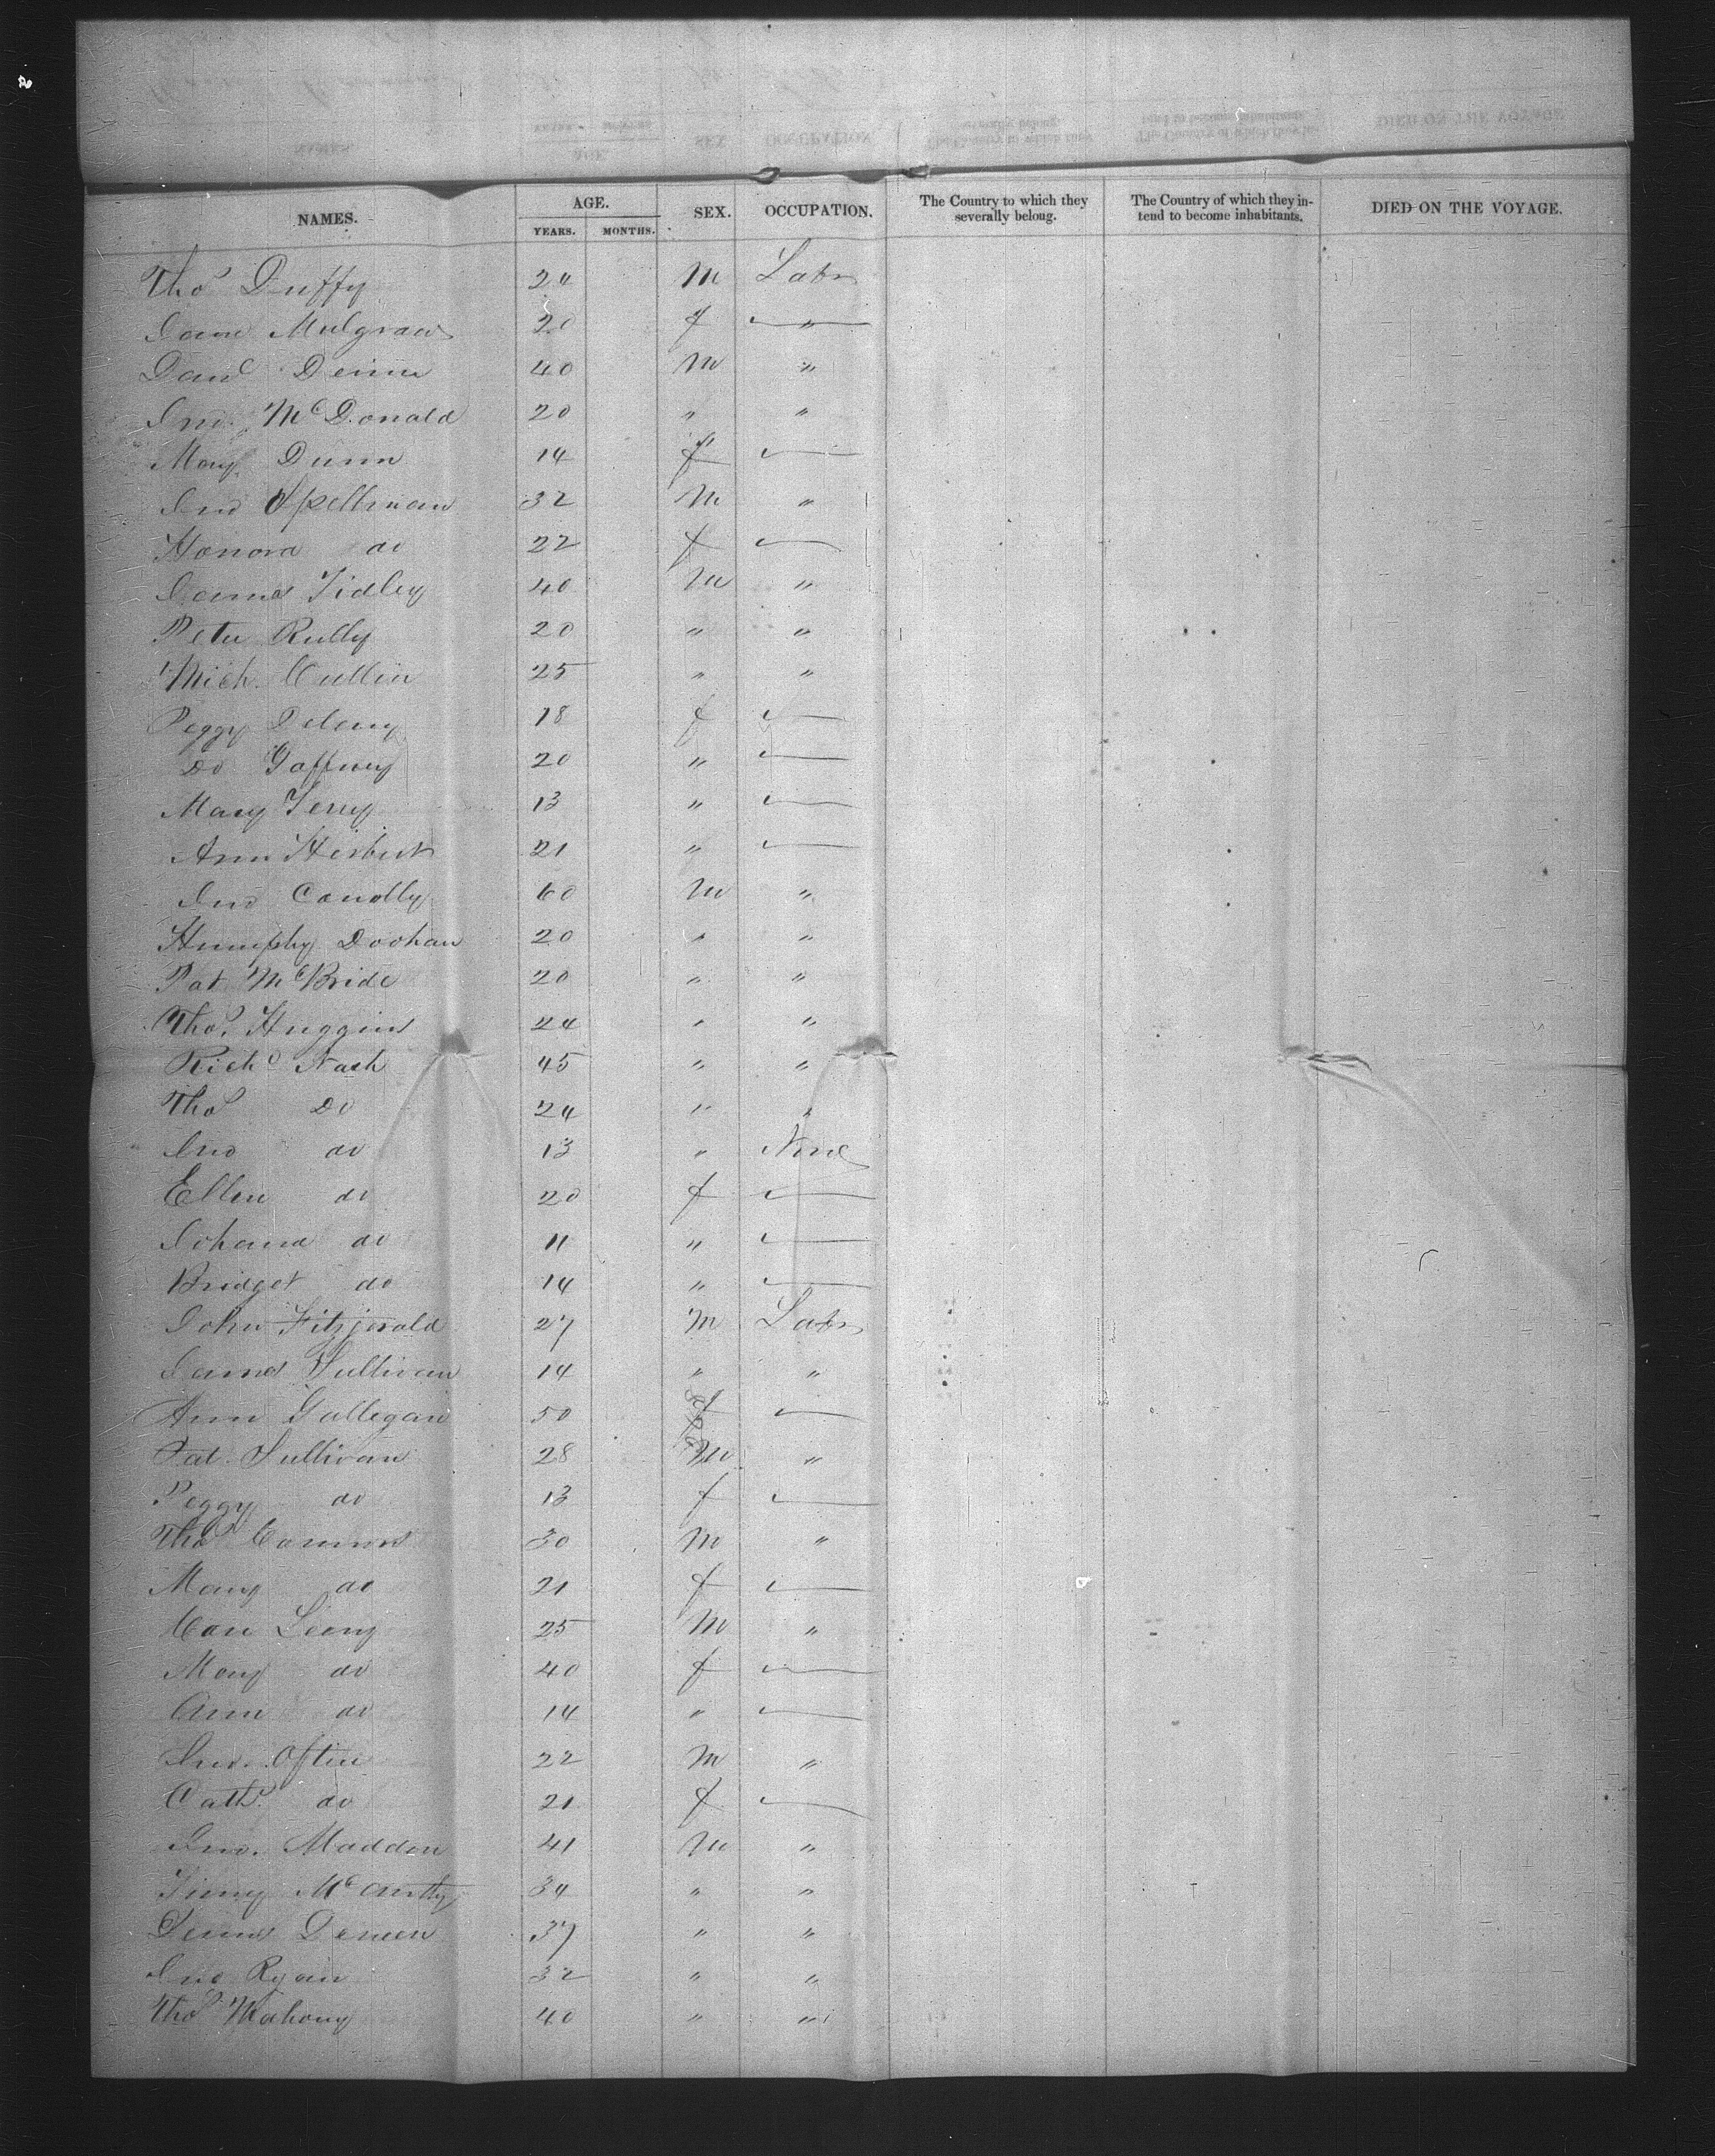 NAMES. AGE. SEX. OCCUPATION. The Country to which they severally belong. The Country of which they intend to become inhabitants. DIED ON THE VOYAGE.
YEARS. MONTHS.
Thos Duffy 24 M Labr
Jane Mulgraw 20 f "
Danl 40 M "
Jno. McDonald 20 " "
Mary Dunn 14 f
Jno Spellman 32 M "
Honora do 22 f
James Fidley 40 M "
Peter Rully 20 " "
Mich. Cullin 25 " "
Peggy Deleny 18 f
Do Gaffney 20 "
Mary 13 "
Ann Herbert 21 "
Jno Conolly 60 M "
Humphy Doohan 20 " "
Pat McBride 20 " "
Thos. Huggins 24 " "
Richd Nash 45 " "
Thos Do 24 " "
Jno do 13 " None
Ellen do 20 f
Johana do 11 "
Bridget do 14 "
John Fitzjerald 27 M Labr
James Sullivan 14 " "
Ann Gallegan 50 f
Pat. Sullivan 28 M "
Peggy do 13 f
Thos Commns 30 M "
Mary do 21 f
25 M "
Mary do 40 f
Ann do 14 "
Jno. Oftin 22 M "
Cath. do 21 f
Jno. Madden 41 M "
Timy McCarthy 34 " "
37 " "
Jno Ryan 32 " "
Thos Mahony 40 " "